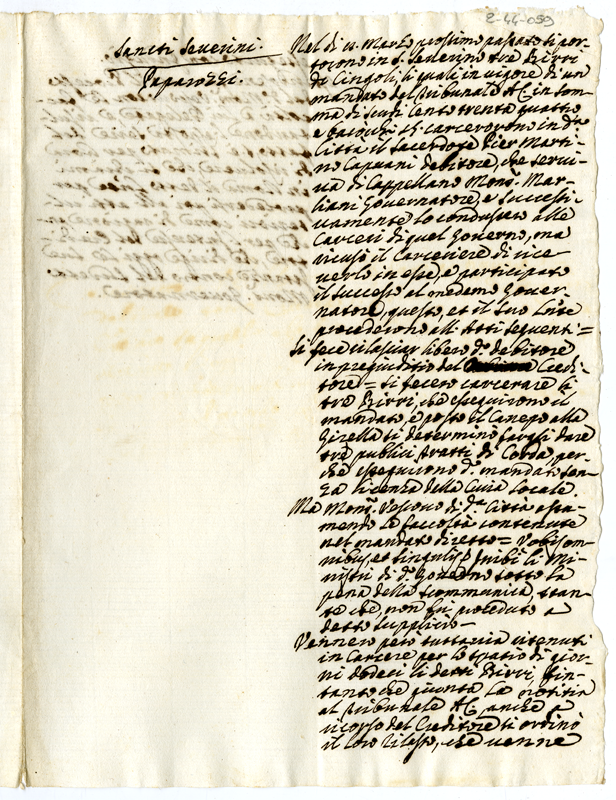 2-44-059
Sancti Severini.
Paparozzi.
Nel dì 11. Marzo prossimo passato si por-
torono in S. Severino trè Birri
di Cingoli, li quali in vigore di un
mandato del Tribunale AC. in som-
ma di scudi cento trenta quattro
e baiocchi 25. carcerorono in d.ª
Città il Sacerdote Pier Marti-
no Capuani debitore, che servi-
va di Cappellano Mons.r Mar-
liani Governatore, e successi-
vamente lo condussero alle
Carceri di quel Governo, ma
ricusò il Carceriere di rice-
verlo in esse, e participato
il successo al medemo Gover-
natore, questo, et il suo Luog.te
procederono alli Atti seguenti =
Si fece rilasciar libero d.º debitore
in pregiuditio del Credi-
tore = si fecero carcerare li
trè Birri, che eseguirono il
mandato, e posto il Canepo alla
Girella si determinò fargli dare
trè publici tratti di Corda, per-
chè eseguirono d.º mandato sen-
za licenza della Curia locale.
Mà Mons.r Vescovo di d.ª Città assu-
mendo le facoltà contenute
nel mandato diretto = Vobis om-
nibus, et singulis inibì li Mi-
nistri di d.º Governo sotto la
pena della scommunica, stan-
te che, non fù proceduto a
detto supplicio -
Vennero però tuttavia ritenuti
in Carcere per lo spatio di gior-
ni dodeci li detti Birri, fin-
tanto che giunta la notitia
al Tribunale AC. anche a
ricorso del Creditore si ordinò
il loro rilasso, che venne